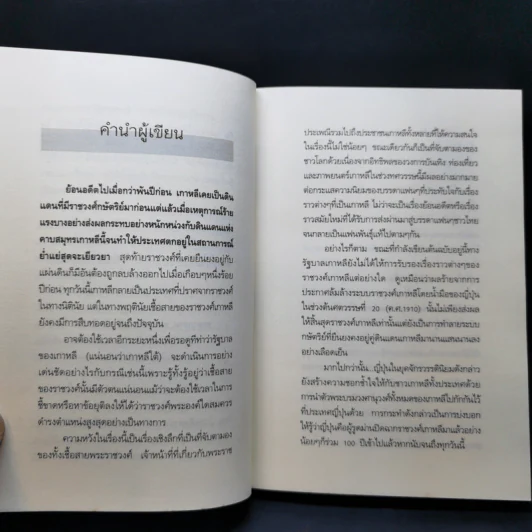 คำนำผู้เขียน
ย้อนอดีตไปเมื่อกว่าพันปีก่อน เกาหลีเคยเป็นดิน
แดนที่มีราชวงศ์กษัตริย์มาก่อนแต่แล้วเมื่อเหตุการณ์ร้าย
แรงบางอย่างส่งผลกระทบอย่างหนักหน่วงกับดินแดนแห่ง
คาบสมุทรเกาหลีนี้จนทำให้ประเทศตกอยู่ในสถานการณ์
ย่ำแย่สุดจะเยียวยา สุดท้ายราชวงศ์ที่เคยยืนยงอยู่กับ
แผ่นดินก็มีอันต้องถูกลบล้างออกไปเมื่อเกือบๆหนึ่งร้อย
ปีก่อน ทุกวันนี้เกาหลีกลายเป็นประเทศที่ปราศจากราชวงศ์
ในทางนิตินัย แต่ในทางพฤตินัยเชื้อสายของราชวงศ์เกาหลี
ยังคงมีการสืบทอดอยู่จนถึงปัจจุบัน
อาจต้องใช้เวลาอีกระยะหนึ่งเพื่อรอดูทีท่าว่ารัฐบาล
ของเกาหลี (แน่นอนว่าเกาหลีใต้) จะดำเนินการอย่าง
เด่นชัดอย่างไรกับกรณีเช่นนี้เพราะรู้ทั้งรู้อยู่ว่าเชื้อสาย
ของราชวงศ์นั้นมีตัวตนแน่นอนแม้ว่าจะต้องใช้เวลาในการ
ชี้ขาดหรือหาข้อยุติลงให้ได้ว่าราชวงศ์พระองค์ใดสมควร
ดำรงตำแหน่งสูงสุดอย่างเป็นทางการ
ความหวังในเรื่องนี้เป็นเรื่องเชิงลึกที่เป็นที่จับตามอง
ของทั้งเชื้อสายพระราชวงศ์ เจ้าหน้าที่ที่เกี่ยวกับพระราช
ประเพณีรวมไปถึงประชาชนเกาหลีทั้งหลายที่ให้ความสนใจ
ในเรื่องนี้ไม่ใช่น้อยๆ ขณะเดียวกันก็เป็นที่จับตามองของ
ชาวโลกด้วยเนื่องจากอิทธิพลของวงการบันเทิง ท่องเที่ยว
และภาพยนตร์เกาหลีในช่วงทศวรรษนี้มีผลอย่างมากมาย
ต่อกระแสความนิยมของบรรดาแฟนๆที่ประทับใจกับเรื่อง
ราวต่างๆที่เป็นเกาหลี ไม่ว่าจะเป็นเรื่องย้อนอดีตหรือเรื่อง
ราวสมัยใหม่ที่ได้รับการส่งผ่านมาสู่บรรดาแฟนๆชาวไทย
จนกลายเป็นแฟนพันธุ์แท้ไปตามๆกัน
อย่างไรก็ตาม ขณะที่กำลังเขียนต้นฉบับอยู่นี้ทาง
รัฐบาลเกาหลียังไม่ได้ให้การรับรองเรื่องราวต่างๆของ
ราชวงศ์เกาหลีแต่อย่างใด ดูเหมือนว่าผลร้ายจากการ
ประกาศล้มล้างระบบราชวงศ์เกาหลีโดยน้ำมือของญี่ปุ่น
ในช่วงต้นศตวรรษที่ 20 (ค.ศ.1910) นั้นไม่เพียงส่งผล
ให้สิ้นสุดราชวงศ์เกาหลีเท่านั้นแต่ยังเป็นการทำลายระบบ
กษัตริย์ที่ยืนยงคงอยู่คู่ดินแดนเกาหลีมานานแสนนานลง
อย่างเลือดเย็น
มากไปกว่านั้น..ญี่ปุ่นในยุคจักรวรรดินิยมดังกล่าว
ยังสร้างความชอกช้ำใจให้กับชาวเกาหลีทั้งประเทศด้วย
การนำตัวพระบรมวงศานุวงศ์ทั้งหมดของเกาหลีไปกักกันไว้
ที่ประเทศญี่ปุ่นด้วย การกระทำดังกล่าวเป็นการบ่งบอก
ให้รู้ว่าญี่ปุ่นคือผู้รูดม่านปิดฉากราชวงศ์เกาหลีมาแล้วอย่าง
น้อยๆก็ร่วม 100 ปีเข้าไปแล้วหากนับจนถึงทุกวันนี้